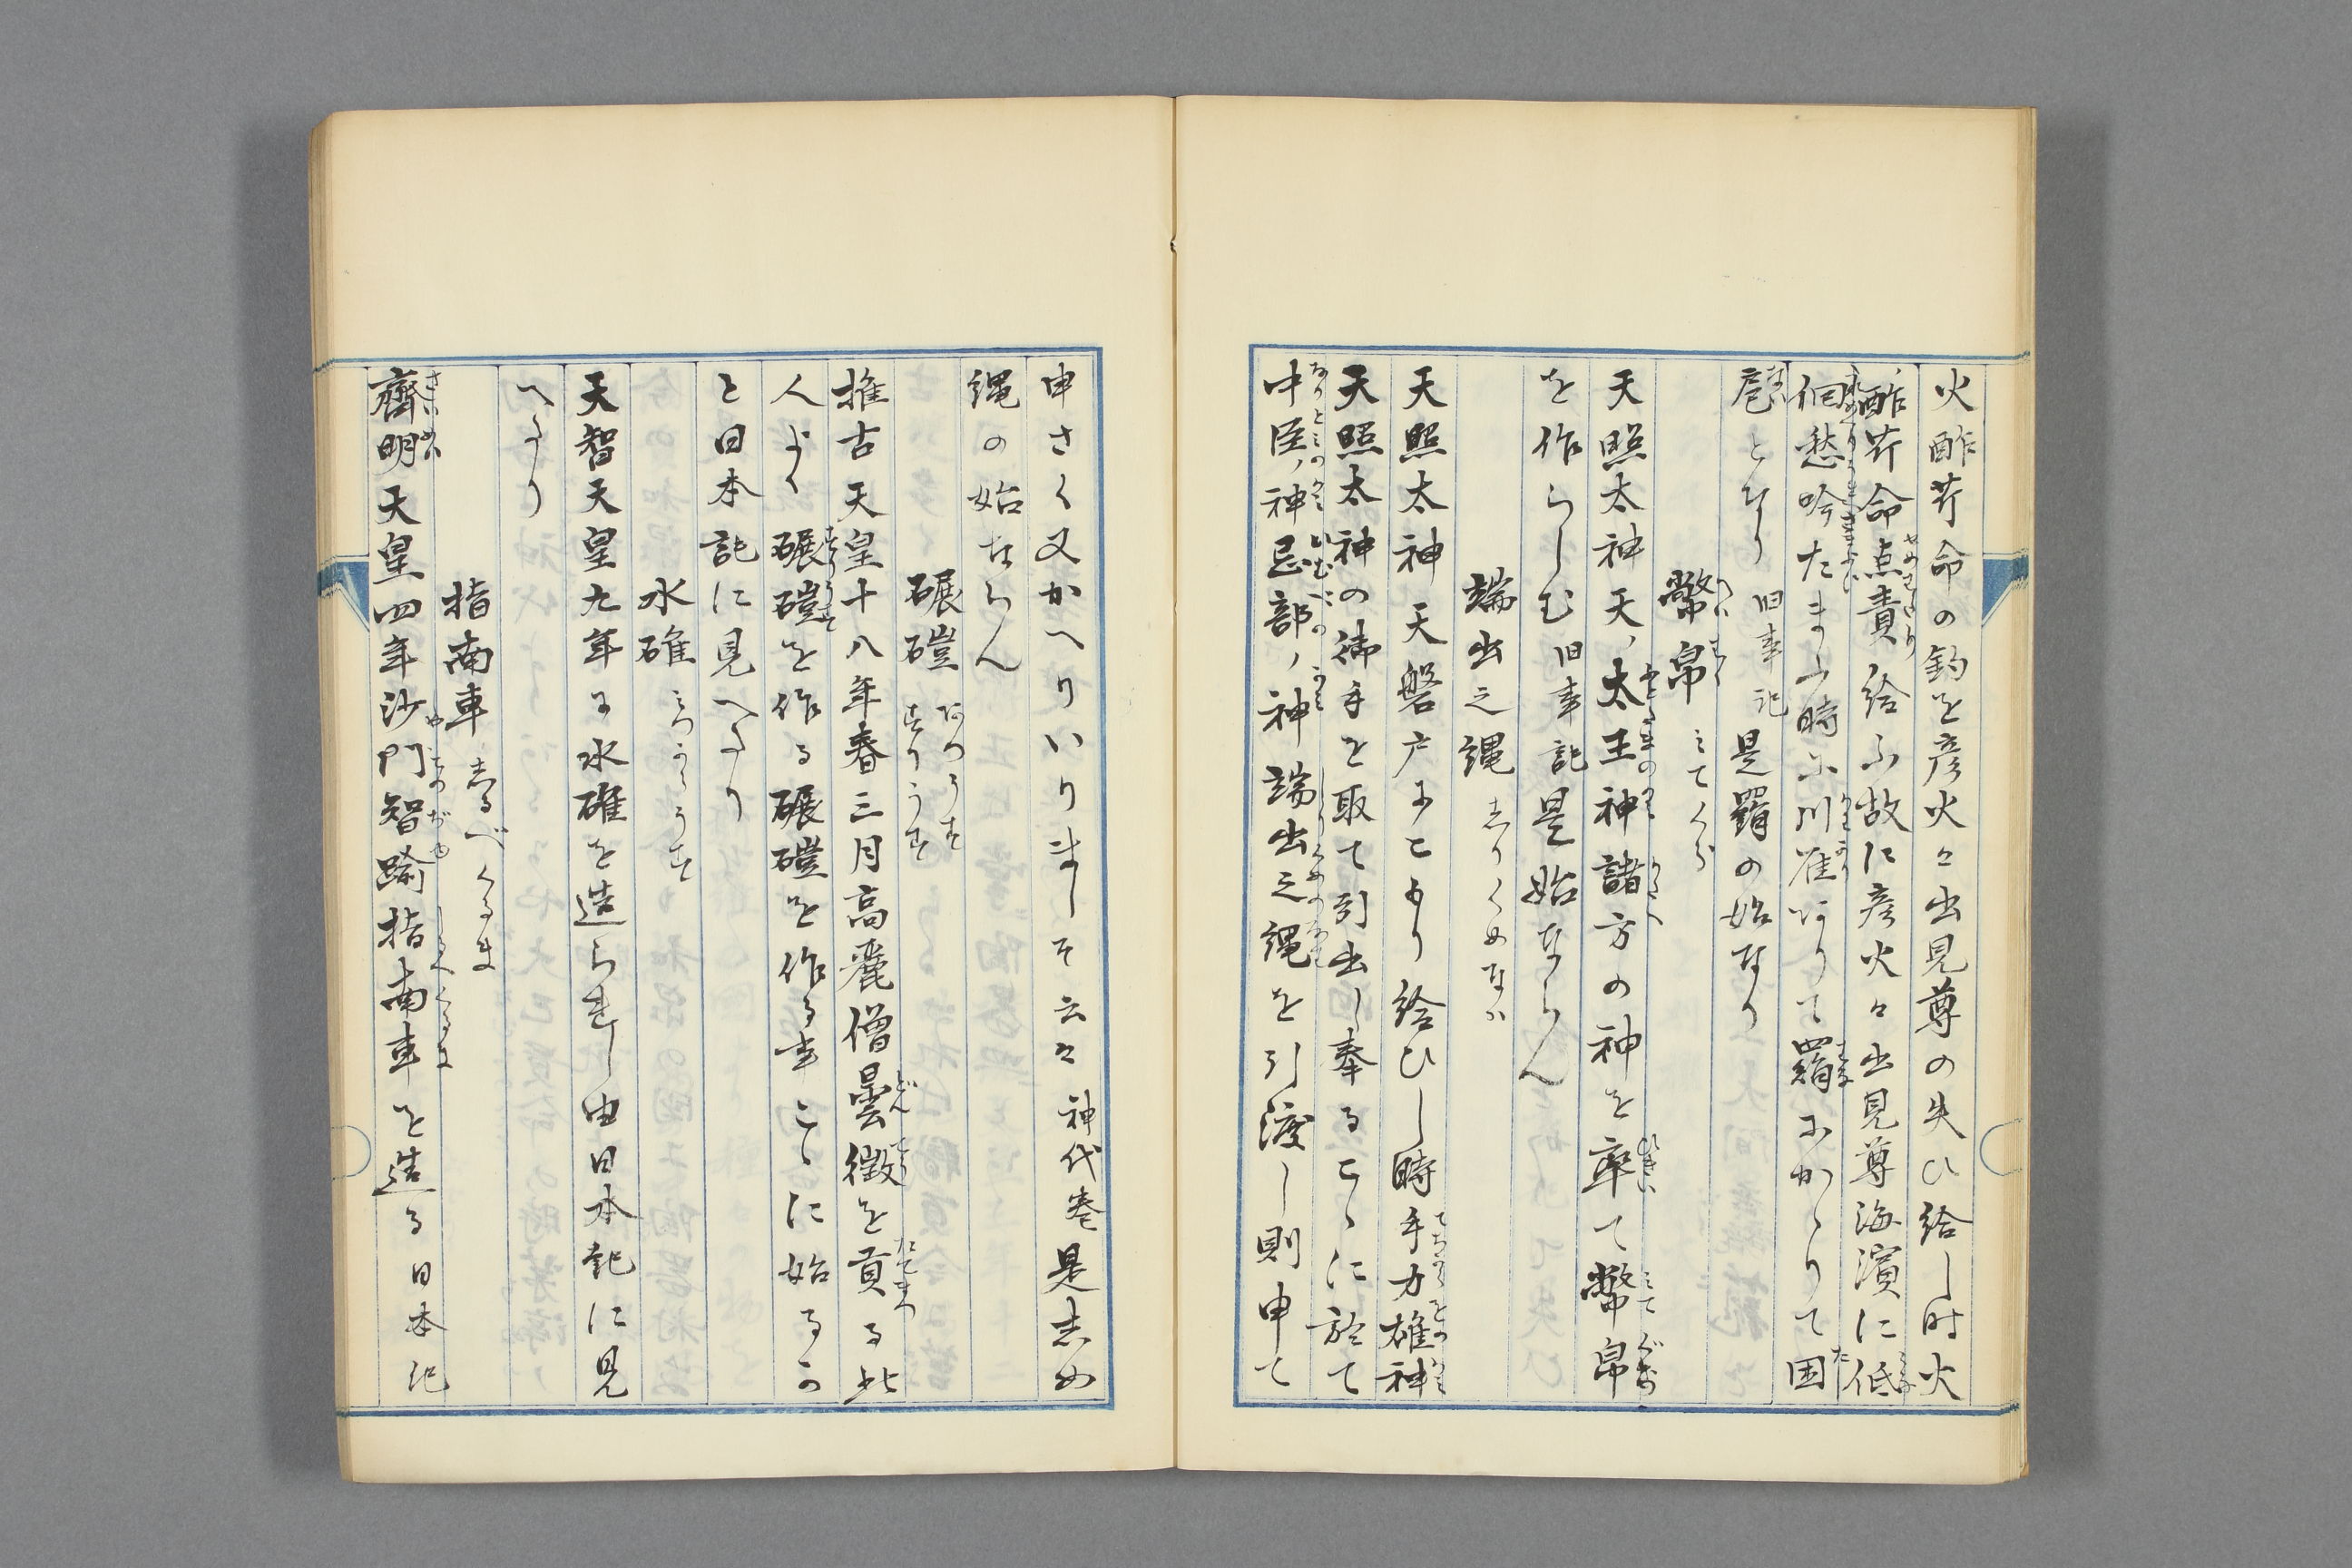 火酢芹命の釣を彦火々出見尊の失ひ給し時火
酢芹命点責給ふ故に彦火々出見尊海濱に低
徊愁吟たまふ時に川雁ありて羂にかゝりて困
厄となり 旧事記 是羂の始なり
幣帛 みてぐら
天照太神天ノ太玉神諸方の神を率て幣帛
を作らしむ 旧事記 是始ならん
端出之縄 しりくめなわ
天照太神 天磐戸にこもり給ひし時手力雄神
天照太神の御手を取て引出し奉るこゝに於て
中臣ノ神忌部ノ神端出之縄を引渡し則申て
申さく又かへりいりましそ云々 神代巻 是志め
縄の始ならん
碾磑
推古天皇十八年春三月高麗僧曇徴を貢る此
人よく碾磑を作る碾磑を作る事こゝに始るか
と日本記に見へたり
水碓 みつからうす
天智天皇九年に水碓を造られし由日本記に見
へたり
指南車 しるべくるま
齊明天皇四年沙門智踰指南車を造る 日本記